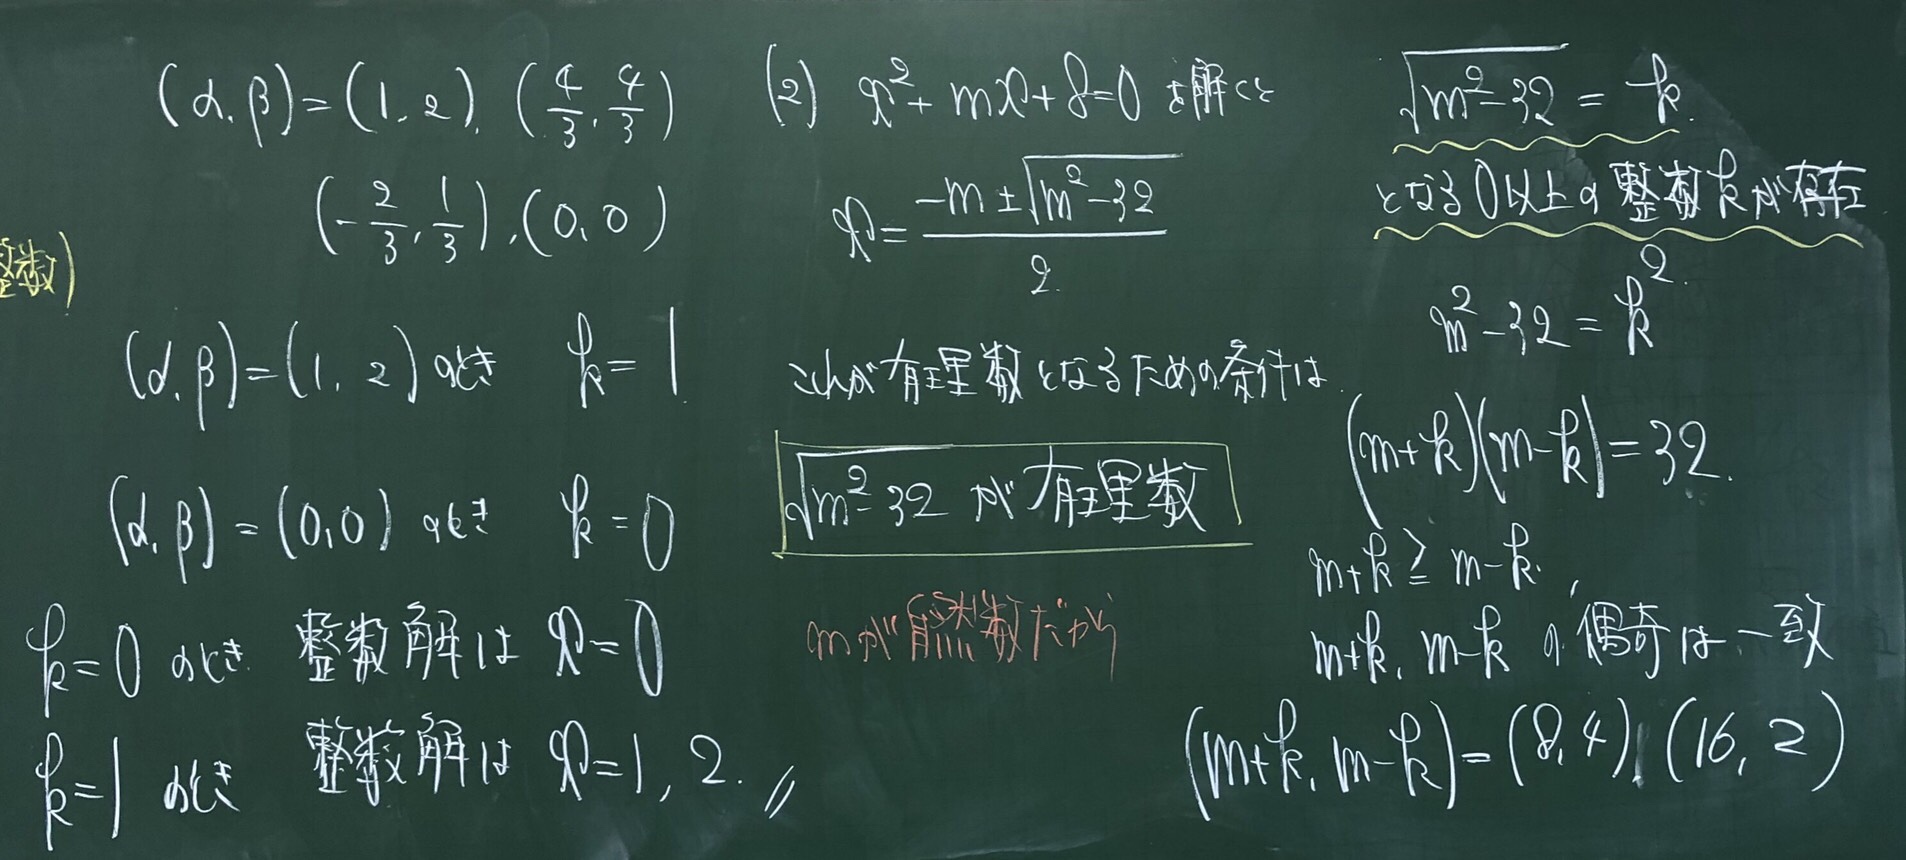 (α, β) = (1, 2), (4/3, 4/3)
(-2/3, 1/3), (0, 0)
整数)
(α, β) = (1, 2) のとき k = 1
(α, β) = (0, 0) のとき k = 0
k = 0 のとき 整数解は x = 0
k = 1 のとき 整数解は x = 1, 2. //
(2) x² + mx + 8 = 0 を解くと
x = (-m ± √(m² - 32)) / 2
これが有理数となるための条件は
√(m² - 32) が有理数
mが自然数だから
√(m² - 32) = k
となる0以上の整数kが存在
m² - 32 = k²
(m+k)(m-k) = 32
m+k ≧ m-k,
m+k, m-k の偶奇は一致
(m+k, m-k) = (8, 4), (16, 2)